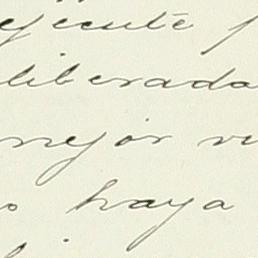 ejecuté
liberada
mejor
o haya